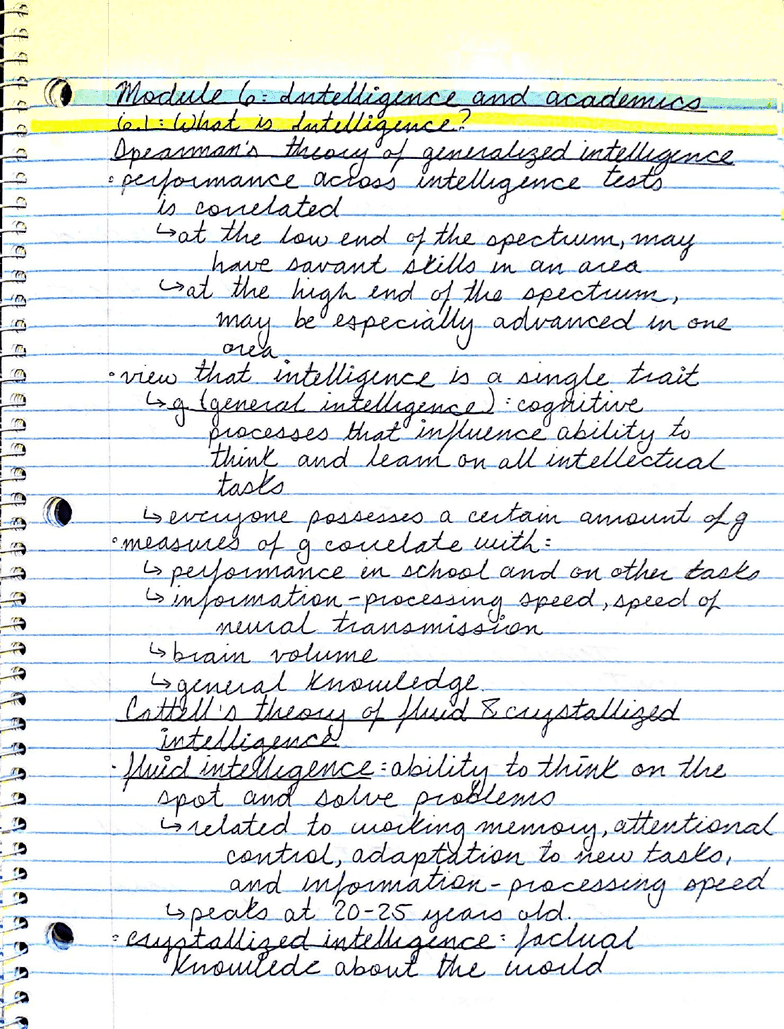 Module 6: Intelligence and academics
6.1: What is Intelligence?
Spearman's theory of generalized intelligence
• performance across intelligence tests
is correlated
↳ at the low end of the spectrum, may
have savant skills in an area
↳ at the high end of the spectrum,
may be especially advanced in one
area
• view that intelligence is a single trait
↳ g (general intelligence): cognitive
processes that influence ability to
think and learn on all intellectual
tasks
↳ everyone possesses a certain amount of g
• measures of g correlate with:
↳ performance in school and on other tasks
↳ information-processing speed, speed of
neural transmission
↳ brain volume
↳ general knowledge
Cattell's theory of fluid & crystallized
intelligence
• fluid intelligence: ability to think on the
spot and solve problems
↳ related to working memory, attentional
control, adaptation to new tasks,
and information-processing speed
↳ peaks at 20-25 years old.
• crystallized intelligence: factual
knowlede about the world